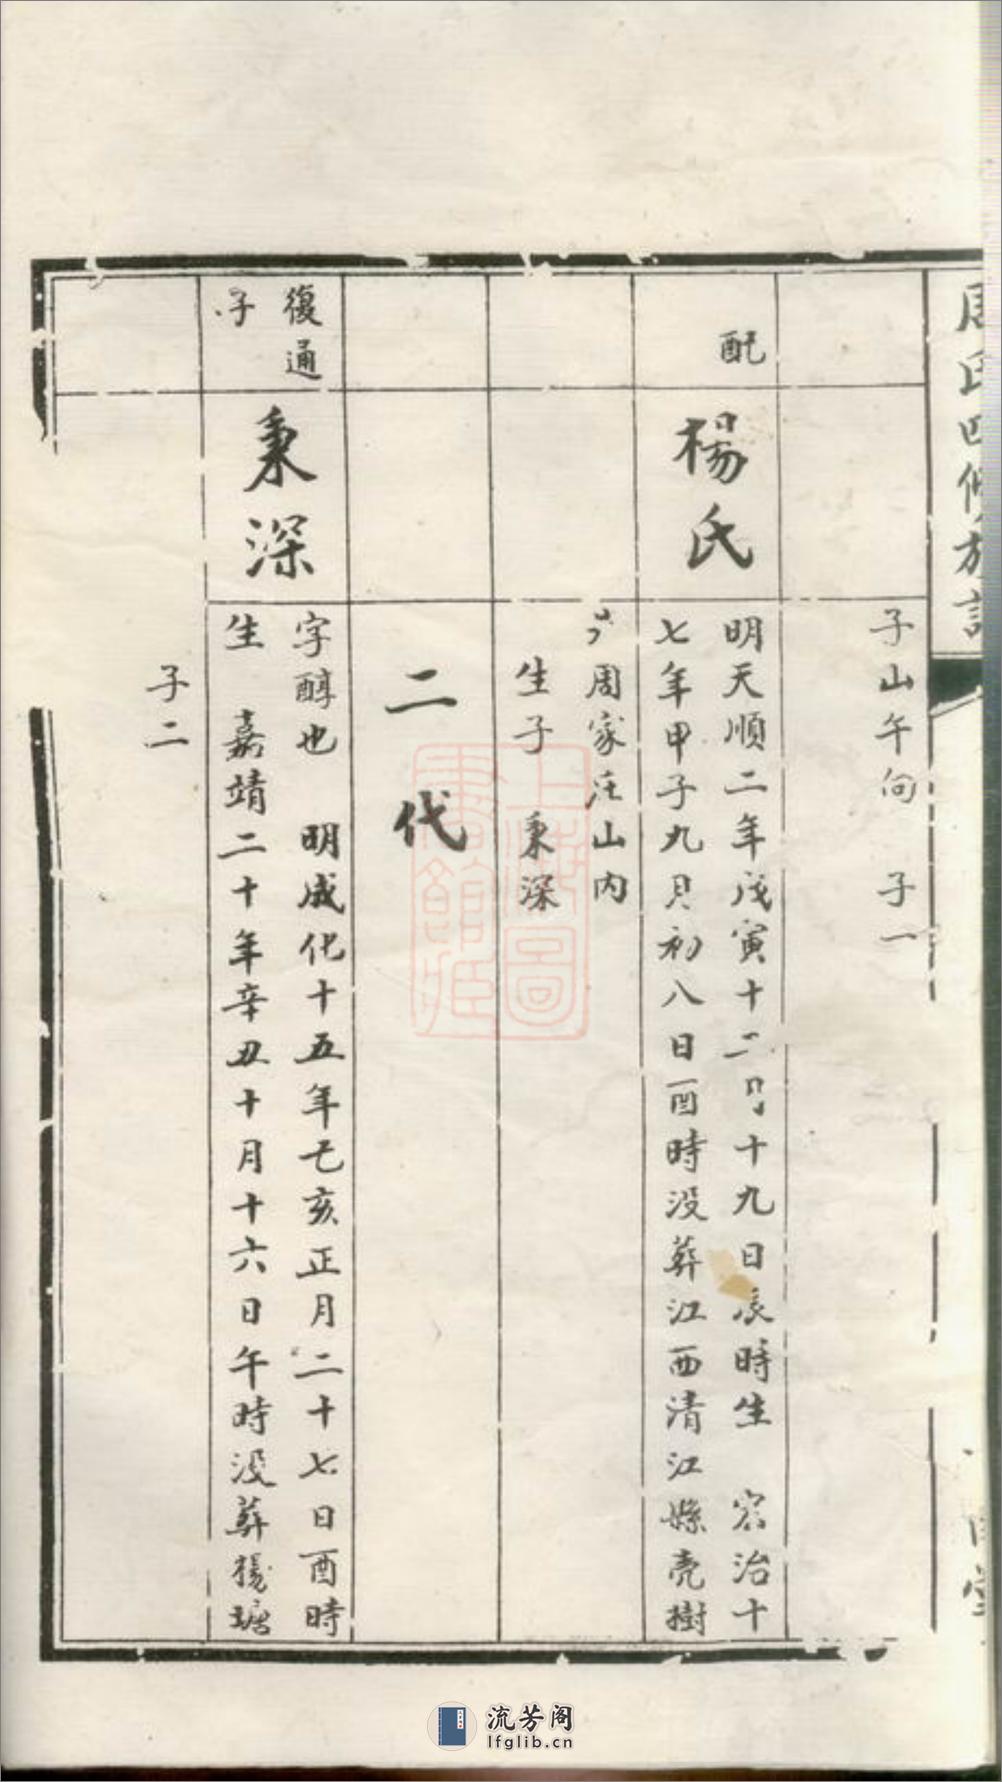 周氏四修族譜
子山午向　子一
配
楊氏
明天順二年戊寅十二月十九日辰時生　治十
七年甲子九月初八日酉時没葬江西清江縣売樹
周家汪山内
生子　秉深
二代
復通
子
秉深
字醇也　明成化十五年乙亥正月二十七日酉時
生　嘉靖二十年辛丑十月十六日午時没葬塘
子二
上海圖書館藏
流芳阁
lfglib.cn